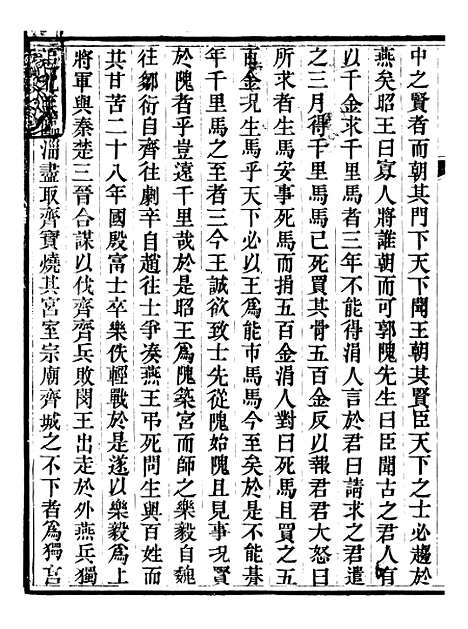 中之賢者而朝其門下天下聞王朝其賢臣天下之士必趨於
燕矣昭王曰寡人將誰朝而可郭隗先生曰臣聞古之君人有
以千金求千里馬者三年不能得涓人言於君曰請求之君遣
之三月得千里馬馬已死買其骨五百金反以報君君大怒曰
所求者生馬安事死馬而捐五百金涓人對曰死馬且買之五
百金況生馬乎天下必以王爲能市馬馬今至矣於是不能朞
年千里馬之至者三今王誠欲致士先從隗始隗且見事況賢
於隗者乎豈遠千里哉於是昭王爲隗築宮而師之樂毅自魏
往鄒衍自齊往劇辛自趙往士爭湊燕燕王弔死問生與百姓而
其甘苦二十八年國殷富士卒樂佚輕戰於是遂以樂毅爲上
將軍與秦楚三晉合謀以伐齊齊兵敗閔王出走於外燕兵獨
淄盡取齊寶燒其宮室宗廟齊城之不下者爲獨宮